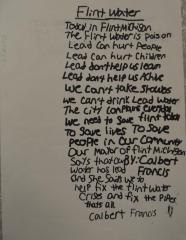 Flint Water
Today in Flint Michigan
The Flint Water is Poison
Lead Can hurt People
Lead Can hurt Children
Lead don't help us learn
Lead don't help us
We can't take
we can't drink Lead Water
The city can everyday
We need to Save flint
To Save lives To Save
people in Our Community
Our Mayor of flint Michigan
Says that By: Calbert
Water has lead Francis
and She Said we to
help fix the flint water
Crises and fix the Pipes
thats all
Calbert Francis